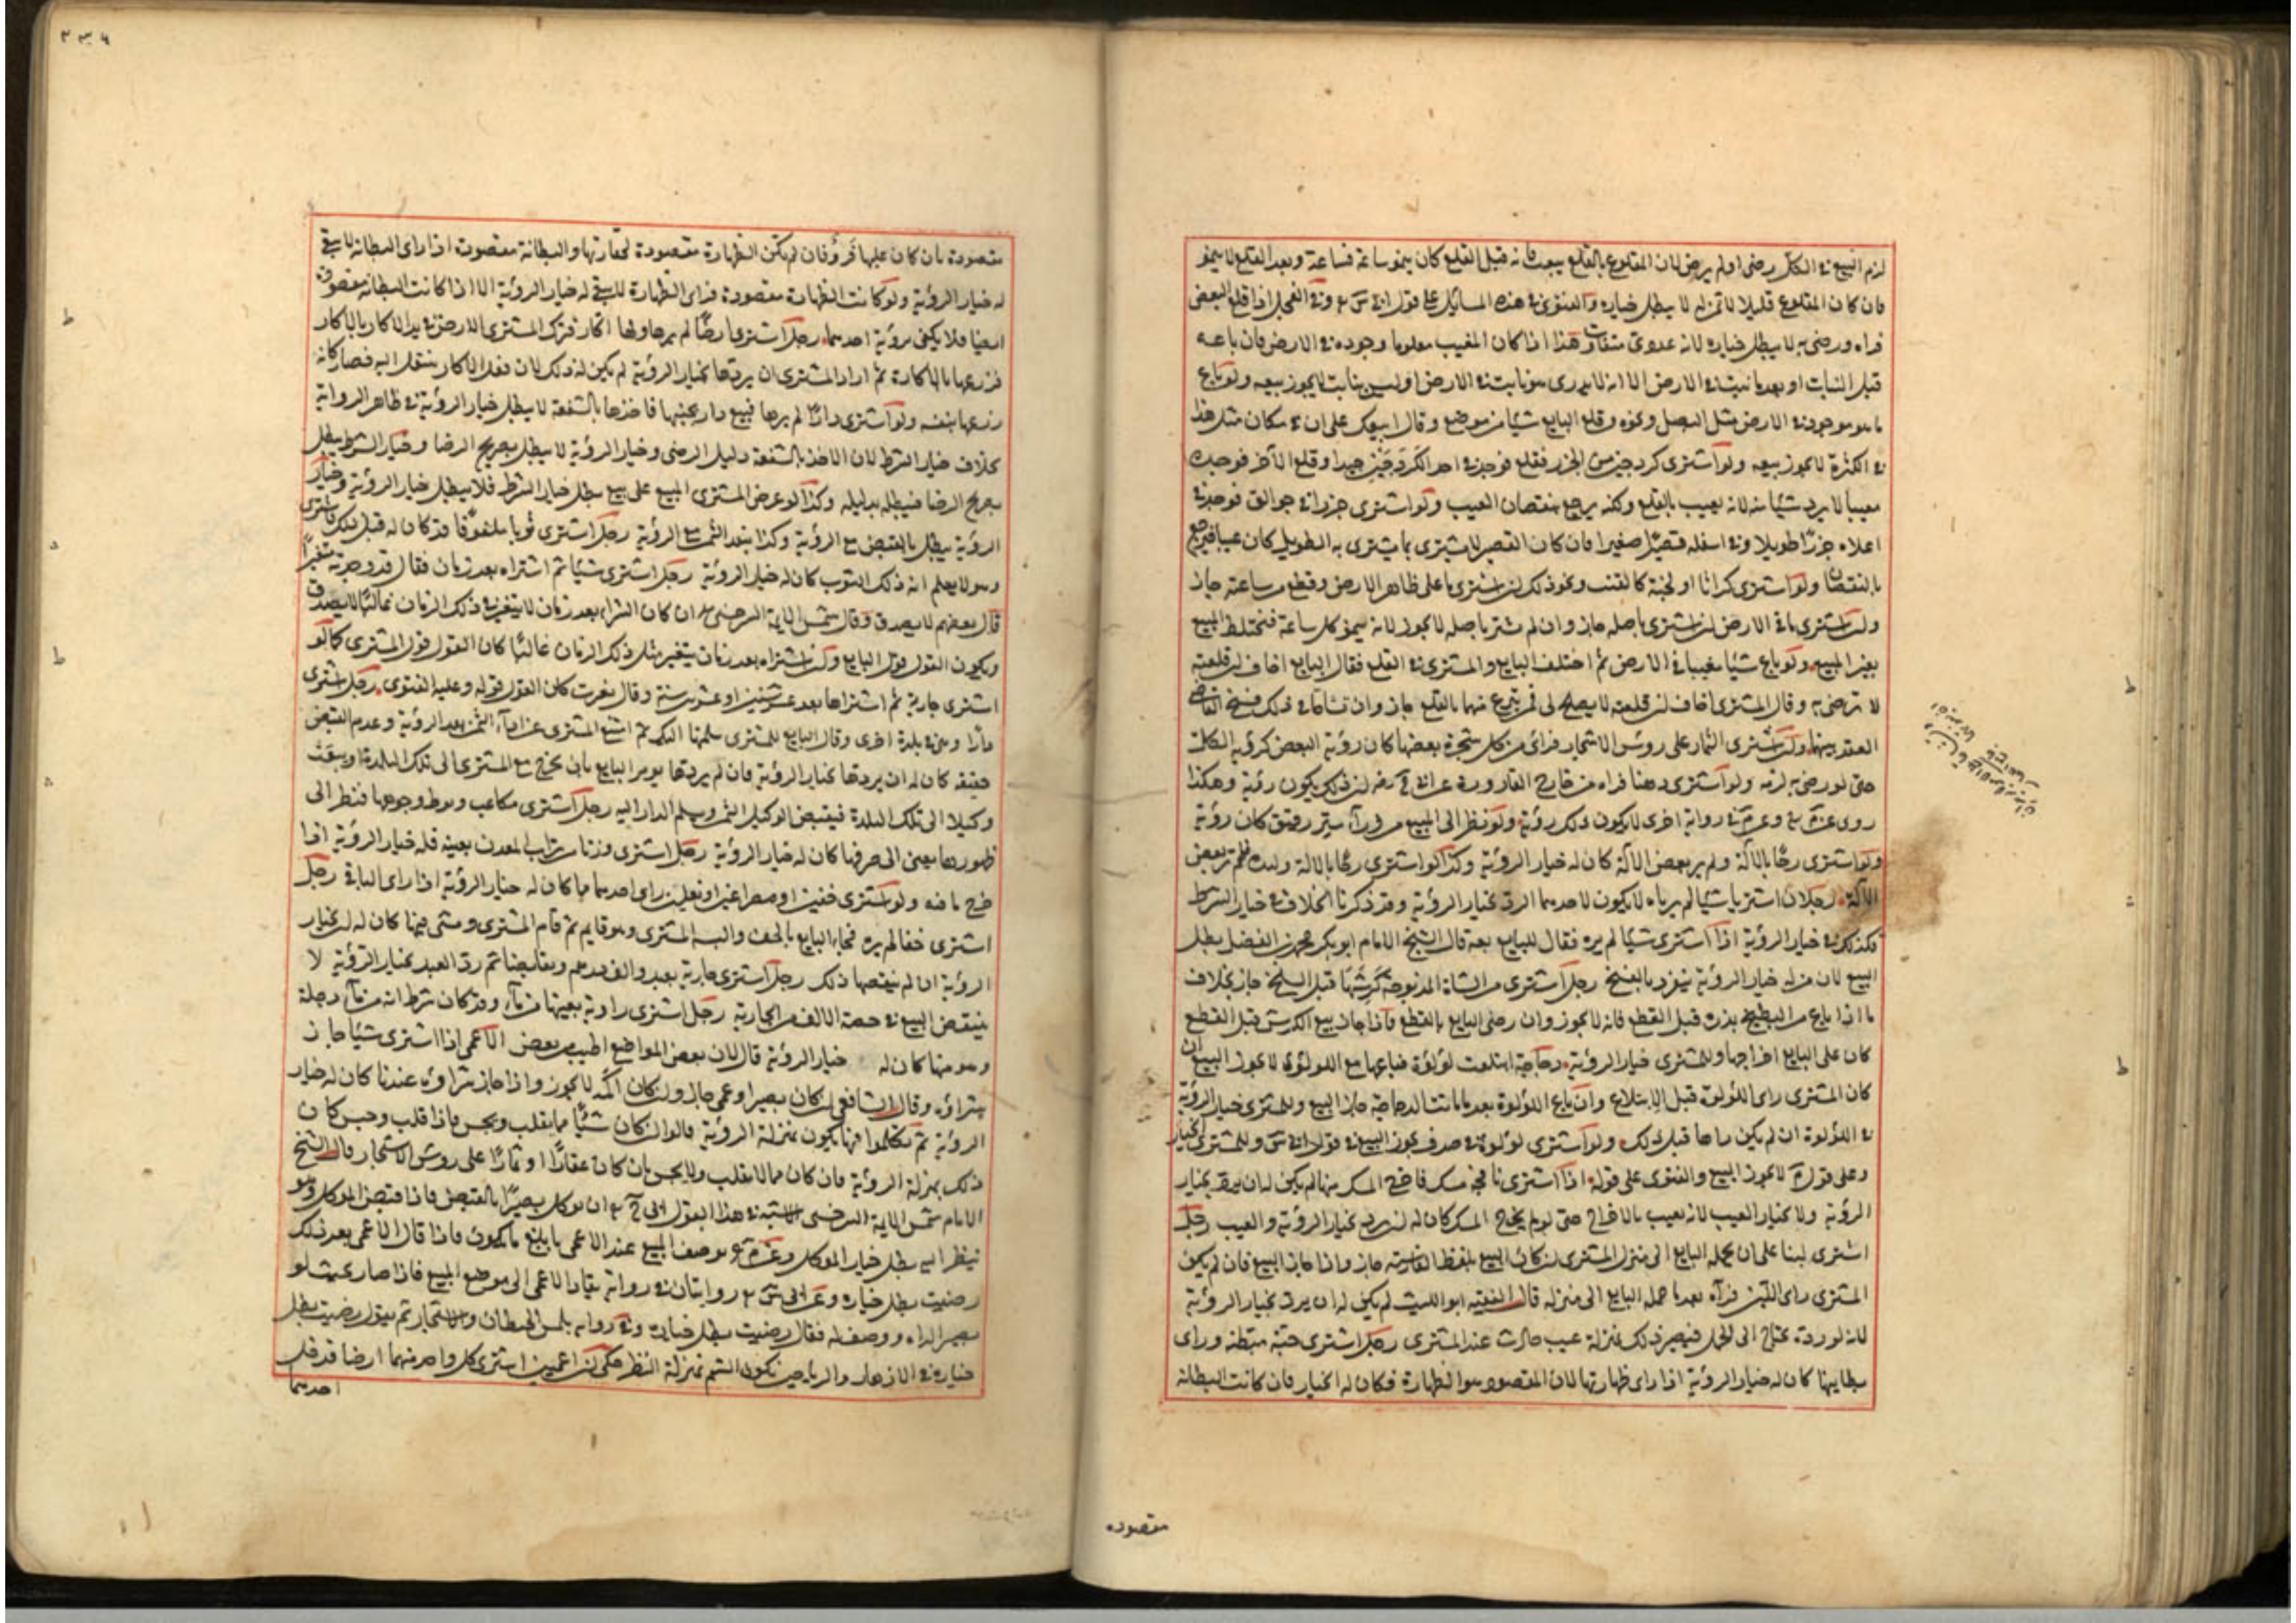 لزم البيع في الكل رضي او لم يرض لان المقلوع بالقلع يعيب فانه قبل القلع كان ينمو ساعة فساعة وبعد القلع لا ينمو
فان كان المقلوع قليلا لا ثمن له لا يبطل خياره والفتوى في هذه المسائل على قول وفي الفجل اذا قلع البعض
فراه ورضي به لا يبطل خياره لانه عددي متفاوت وهذا اذا كان المغيب معلوما وجوده في الارض فان باعه
قبل النبات او بعد ما نبت في الارض الا انه لا يدرى هو نابت في الارض او ليس بنابت لا يجوز بيعه ولو باع
ما هو موجود في الارض مثل البصل ونحوه وقلع البايع شيئا من موضع وقال ابيعك على ان في كل مكان مثل هذا
في الكثرة لا يجوز بيعه ولو اشترى كردجين من الجزر فقلع فوجد في احد الكردجين جيدا وقلع الآخر فوجده
معيبا لا يرد شيئا منه لانه تعيب بالقلع ولكنه يرجع بنقصان العيب ولو اشترى جزرا في جوالق فوجد في
اعلاه جزرا طويلا وفي اسفله قصيرا صغيرا فان كان القصير لا يشترى بما يشترى به الطويل كان عيبا فيرجع
بالنقصان ولو اشترى كراثا او كالقت ونحو ذلك ان اشترى ما على ظاهر الارض وقطع من ساعته جاز
وان اشترى ما في الارض ان اشترى باصله جاز وان لم يشتر باصله لا يجوز لانه ينمو كل ساعة فيختلط المبيع
بغير المبيع ولو باع شيئا مغيبا في الارض ثم اختلف البايع والمشترى في القلع فقال البايع اخاف ان قلعته
لا ترضى به وقال المشترى اخاف ان قلعته لا يصلح لي فمن تبرع منهما بالقلع جاز وان تشاحا في ذلك فسخ القاضي
العقد بينهما ولو اشترى الثمار على رؤس الاشجار فراى من كل شجرة بعضها كان رؤية البعض كرؤية الكل
حتى لو رضي به لزمه ولو اشترى دهنا فراه من خارج القارورة ان ذلك يكون رؤية وهكذا
روى وفي رواية اخرى لا يكون ذلك رؤية ولو نظر الى المبيع من وراء ستر رقيق كان رؤية
ولو اشترى رحًا بالآلة ولم ير بعض الآلة كان له خيار الرؤية وكذا لو اشترى رحًا بالالة فلم ير بعض
الآلة رجلان اشتريا شيئا لم يرياه لا يكون لاحدهما الرد بخيار الرؤية وقد ذكرنا الخلاف في خيار الشرط
فكذلك في خيار الرؤية اذا اشترى شيئا لم يره فقال للبايع بعه قال الشيخ الامام ابو بكر محمد بن الفضل يبطل
البيع لان من له خيار الرؤية ينفرد بالفسخ رجل اشترى من الشاة المذبوحة كرشها قبل السلخ جاز بخلاف
ما اذا باع من البطيخ بذره قبل القطع فانه لا يجوز وان رضي البايع بالقطع واذا جاز بيع الكرش قبل القطع
كان على البايع اخراجها وللمشترى خيار الرؤية دجاجة ابتلعت لؤلؤة فباعها مع اللؤلؤة لا يجوز البيع ان
كان المشترى راى اللؤلؤة قبل الابتلاع وان باع اللؤلؤة بعد ما ماتت الدجاجة جاز البيع وللمشترى خيار الرؤية
في اللؤلؤة ان لم يكن راها قبل ذلك ولو اشترى لؤلؤة في صدف يجوز البيع في قول وللمشترى الخيار
وعلى قول لا يجوز البيع والفتوى على قوله اذا اشترى نافجة مسك فاخرج المسك منها لم يكن له ان يرد بخيار
الرؤية ولا بخيار العيب لانه يعيب بالاخراج حتى لو لم يخرج المسك كان له ان يرد بخيار الرؤية والعيب رجل
اشترى لبنا على ان يحمله البايع الى منزل المشترى ان كان البيع بلفظ الفارسية جاز واذا جاز البيع فان لم يكن
المشترى راى اللبن فرآه بعد ما حمله البايع الى منزله قال الفقيه ابو الليث لم يكن له ان يرد بخيار الرؤية
لانه لو رده يحتاج الى الحمل فيصير ذلك بمنزلة عيب حادث عند المشترى رجل اشترى جبة مبطنة وراى
بطانتها كان له خيار الرؤية اذا راى ظهارتها لان المقصود هو الظهارة فكان له الخيار فان كانت البطانة
مقصوده
٢٣٦
مقصودة بان كان عليها فرو فان لم تكن الظهارة مقصودة لحقارتها والبطانة مقصودة اذا راى البطانة لا يبقى
له خيار الرؤية ولو كانت الظهارة مقصودة فراى الظهارة لا يبقى له خيار الرؤية الا اذا كانت البطانة مقصودة
ايضا فلا يكفي برؤية احدهما رجل اشترى ارضا لم يرها ولها اكار فترك المشترى الارض في يد الاكار بالاكار
فزرعها بالاكارة ثم اراد المشترى ان يردها بخيار الرؤية لم يكن له ذلك لان فعل الاكار ينتقل اليه فصار كانه
زرعها بنفسه ولو اشترى دارا لم يرها فبيع دار بجنبها فاخذها بالشفعة لا يبطل خيار الرؤية في ظاهر الرواية
بخلاف خيار الشرط لان الاخذ بالشفعة دليل الرضى وخيار الرؤية لا يبطل بصريح الرضا وخيار الشرط يبطل
بصريح الرضا فيبطله بدليله وكذا لو عرض المشترى المبيع على بيع يبطل خيار الشرط فلا يبطل خيار الرؤية وخيار
الرؤية يبطل بالقبض مع الرؤية وكذا بنقد الثمن مع الرؤية رجل اشترى ثوبا ملفوفا قد كان له قبل ذلك فاشترى
وهو لا يعلم انه ذلك الثوب كان له خيار الرؤية رجل اشترى شيئا ثم اشتراه بعد زمان فقال قد وجدته متغيرا
قال بعضهم لا يصدق وقال شمس الايمة السرخسي ان كان الشراء بعد زمان لا يتغير في ذلك الزمان غالبا لا يصدق
ويكون القول قول البايع وان اشتراه بعد زمان يتغير مثل ذلك الزمان غالبا كان القول قول المشترى كما لو
اشترى جارية ثم اشتراها بعد عشر سنين او عشرين سنة وقال تغيرت كان القول قوله وعليه الفتوى رجل اشترى
دارا وهي في بلدة اخرى وقال البايع للمشترى سلمتها اليك ثم امتنع المشترى عن اداء الثمن بعد الرؤية وعدم القبض
حقيقة كان له ان يردها بخيار الرؤية فان لم يردها يومر البايع بان يخرج مع المشترى الى تلك البلدة او يبعث
وكيلا الى تلك البلدة فيقبض الوكيل الثمن ويسلم الدار اليه رجل اشترى مكاعب وجوهها فنظر الى
ظهورها يعنى الى صرفها كان له خيار الرؤية رجل اشترى وزنا من تراب المعدن بعينه فله خيار الرؤية اذا
خرج ما فيه ولو اشترى خفين او مصراعين او نعلين راى احدهما كان له خيار الرؤية اذا راى الباقي رجل
اشترى خفا لم يره فجاء البايع بالخف والبسه المشترى وهو قايم ثم قام المشترى ومشى فيها كان له الرد بخيار
الرؤية ان لم ينقصها ذلك رجل اشترى جارية بعبد والف درهم وتقابضا ثم رد العبد بخيار الرؤية لا
ينتقض البيع في حصة الالف من الجارية رجل اشترى راوية بعينها من ماء وقد كان شرط انه من ماء دجلة
وهو منها كان له خيار الرؤية قال لان بعض المواضع اطيب من بعض الاعمى اذا اشترى شيئا جاز
شراؤه وقال الشافعي ان كان بصيرا وعمي جاز وان كان اكمه لا يجوز واذا جاز شراؤه عندنا كان له خيار
الرؤية ثم تكلموا فيما يكون بمنزلة الرؤية قالوا ان كان شيئا مما يقلب ويجس فاذا قلب وجس كان
ذلك بمنزلة الرؤية فان كان مما لا يقلب ولا يجس بان كان عقارا او ثمارا على روس الاشجار قال الشيخ
الامام شمس الايمة السرخسي في هذا القول ان يوكل بصيرا بالقبض فاذا قبض الموكل وهو
ينظر اليه يبطل خيار الموكل يوصف المبيع عند الاعمى بابلغ ما يكون فاذا قال الاعمى بعد ذلك
رضيت بطل خياره روايتان في رواية يقاد الاعمى الى موضع المبيع فاذا صار بحيث لو
بصيرا لراه ووصف له فقال رضيت بطل خياره وفي رواية يلمس الحيطان والاشجار ثم يقول رضيت بطل
خياره في الازهار والرياحين يكون الشم بمنزلة النظر اعميين اشترى كل واحد منهما ارضا قد قبل
احدهما